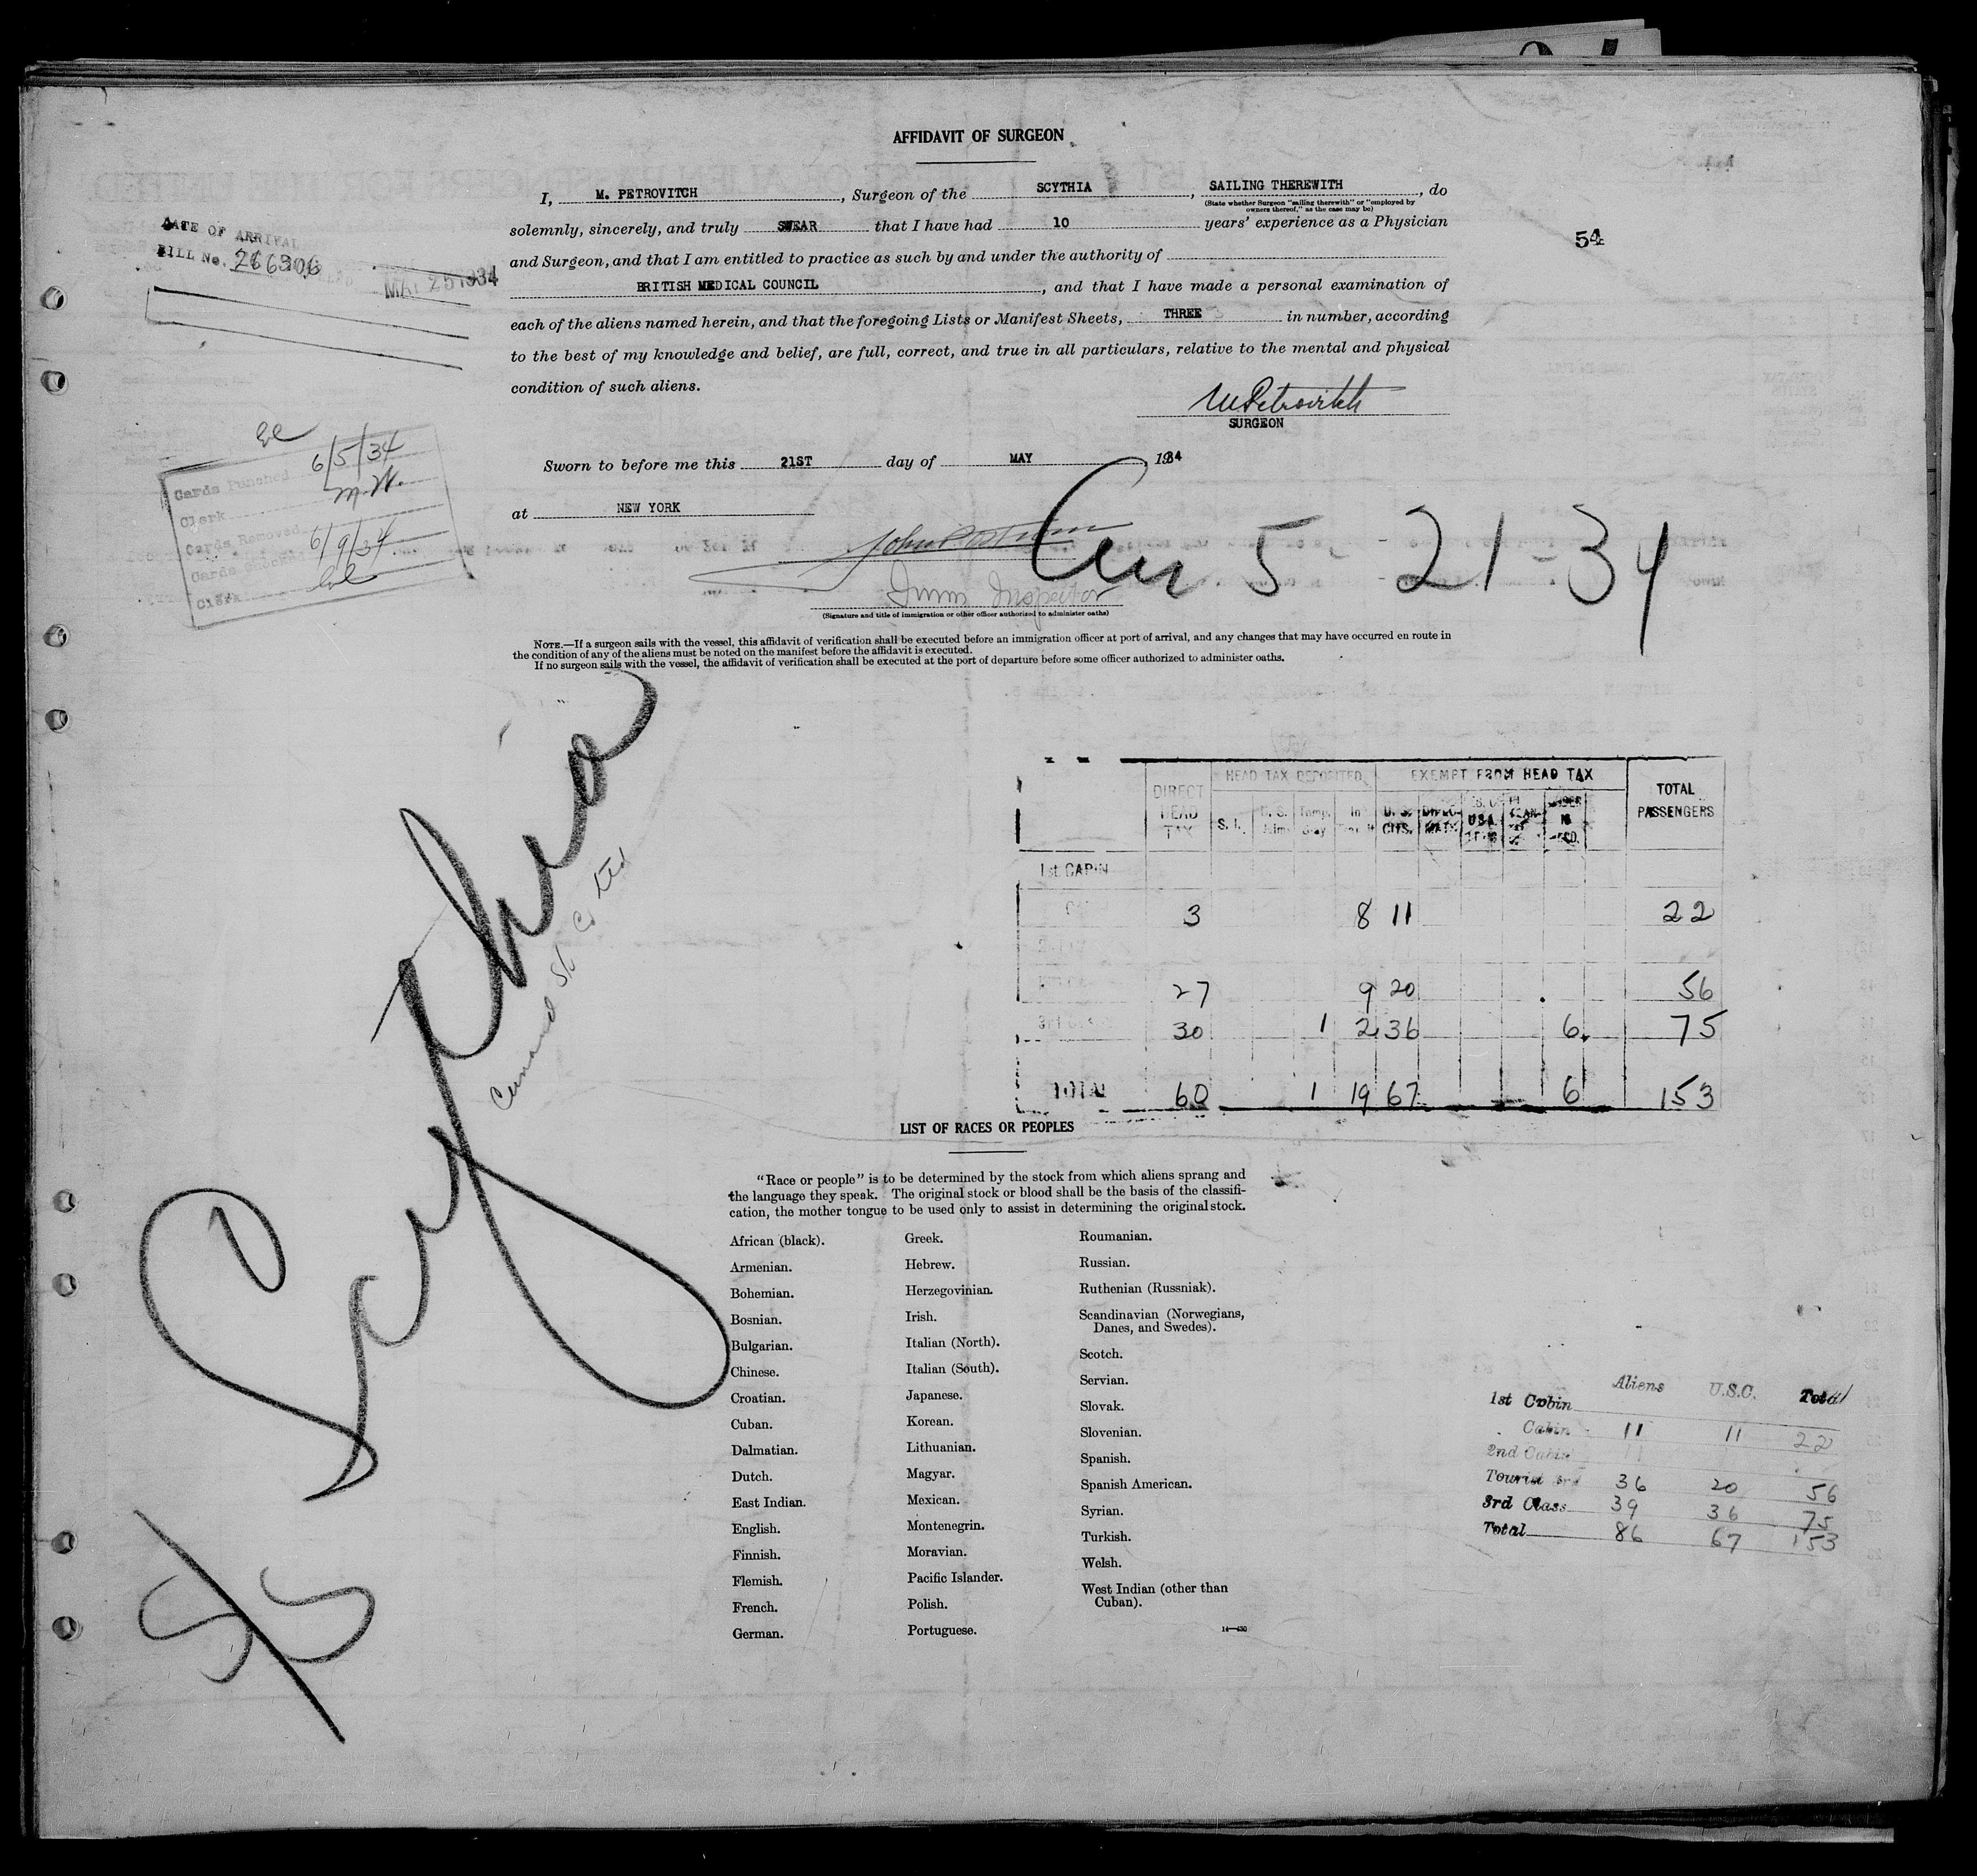 AFFIDAVIT OF SURGEON
I, M. PETROVITCH, Surgeon of the SCYTHIA, SAILING THEREWITH, do
(State whether Surgeon "sailing therewith" or "employed by
owners thereof," as the case may be)
solemnly, sincerely, and truly SWEAR that I have had 10 years' experience as a Physician
and Surgeon, and that I am entitled to practice as such by and under the authority of
BRITISH MEDICAL COUNCIL, and that I have made a personal examination of
each of the aliens named herein, and that the foregoing Lists or Manifest Sheets, THREE in number, according
to the best of my knowledge and belief, are full, correct, and true in all particulars, relative to the mental and physical
condition of such aliens.
M Petrovitch
SURGEON
Sworn to before me this 21ST day of MAY 1934
at NEW YORK
Immn Inspector
(Signature and title of immigration or other officer authorized to administer oaths)
Arr. 5-21-34
NOTE.—If a surgeon sails with the vessel, this affidavit of verification shall be executed before an immigration officer at port of arrival, and any changes that may have occurred en route in
the condition of any of the aliens must be noted on the manifest before the affidavit is executed.
If no surgeon sails with the vessel, the affidavit of verification shall be executed at the port of departure before some officer authorized to administer oaths.
54
DATE OF ARRIVAL
BILL No. 266306
MAY 25 1934
Cards Punched 6/5/34
Clerk M.W.
Cards Removed
Cards Checked 6/9/34
Clerk
S/S Scythia
Cunard SS Co Ltd
DIRECT HEAD TAX
HEAD TAX DEPOSITED
EXEMPT FROM HEAD TAX
TOTAL PASSENGERS
S. I.
U. S. CITS.
1st CABIN
3 8 11 22
27 9 20 56
30 1 2 36 6 75
TOTAL 60 1 19 67 6 153
LIST OF RACES OR PEOPLES
"Race or people" is to be determined by the stock from which aliens sprang and
the language they speak. The original stock or blood shall be the basis of the classifi-
cation, the mother tongue to be used only to assist in determining the original stock.
African (black).
Armenian.
Bohemian.
Bosnian.
Bulgarian.
Chinese.
Croatian.
Cuban.
Dalmatian.
Dutch.
East Indian.
English.
Finnish.
Flemish.
French.
German.
Greek.
Hebrew.
Herzegovinian.
Irish.
Italian (North).
Italian (South).
Japanese.
Korean.
Lithuanian.
Magyar.
Mexican.
Montenegrin.
Moravian.
Pacific Islander.
Polish.
Portuguese.
Roumanian.
Russian.
Ruthenian (Russniak).
Scandinavian (Norwegians,
Danes, and Swedes).
Scotch.
Servian.
Slovak.
Slovenian.
Spanish.
Spanish American.
Syrian.
Turkish.
Welsh.
West Indian (other than
Cuban).
14—430
Aliens U.S.C. Total
1st Cabin
Cabin 11 11 22
2nd Cabin
Tourist 3rd 36 20 56
3rd Class 39 36 75
Total 86 67 153